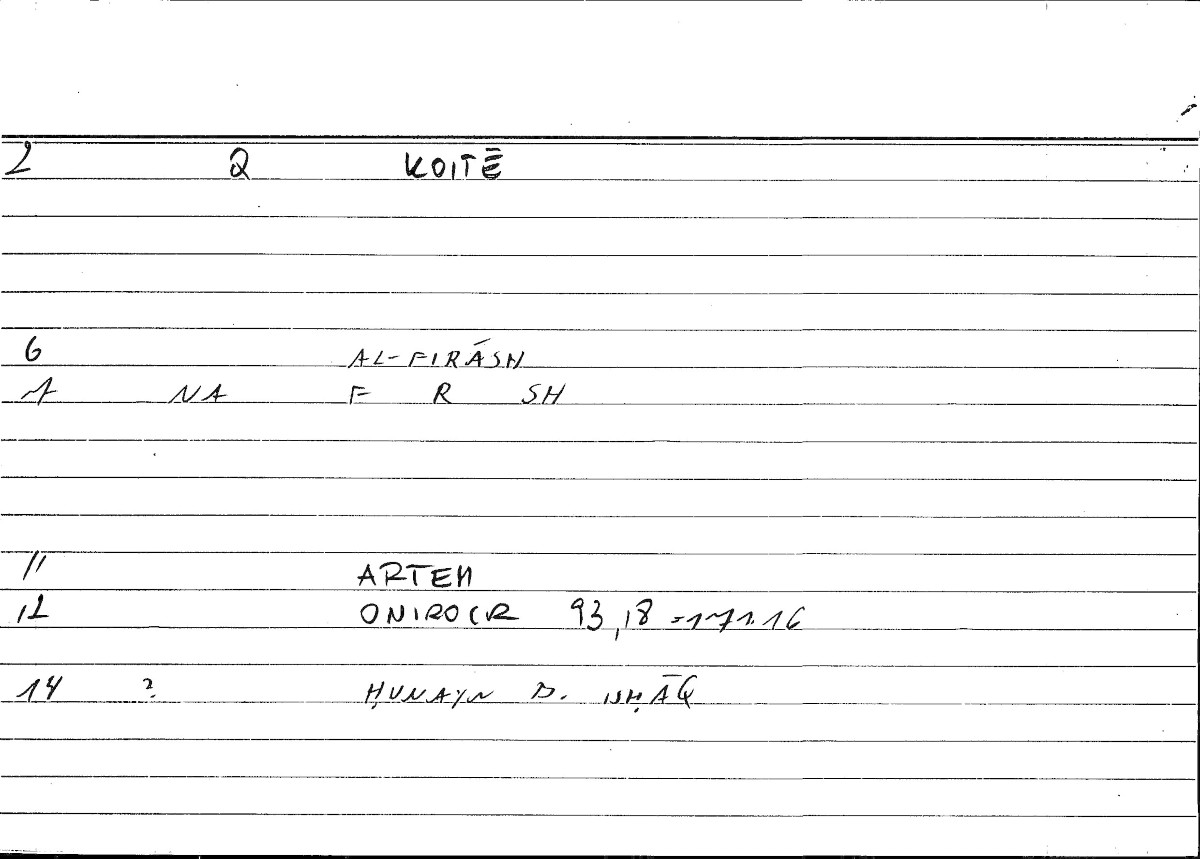 2 Q KOITĒ
6 AL-FIRĀSH
7 NA F R SH
11 ARTEM
12 ONIROCR 93,18 = 171.16
14 ? ḤUNAYN B. ISḤĀQ